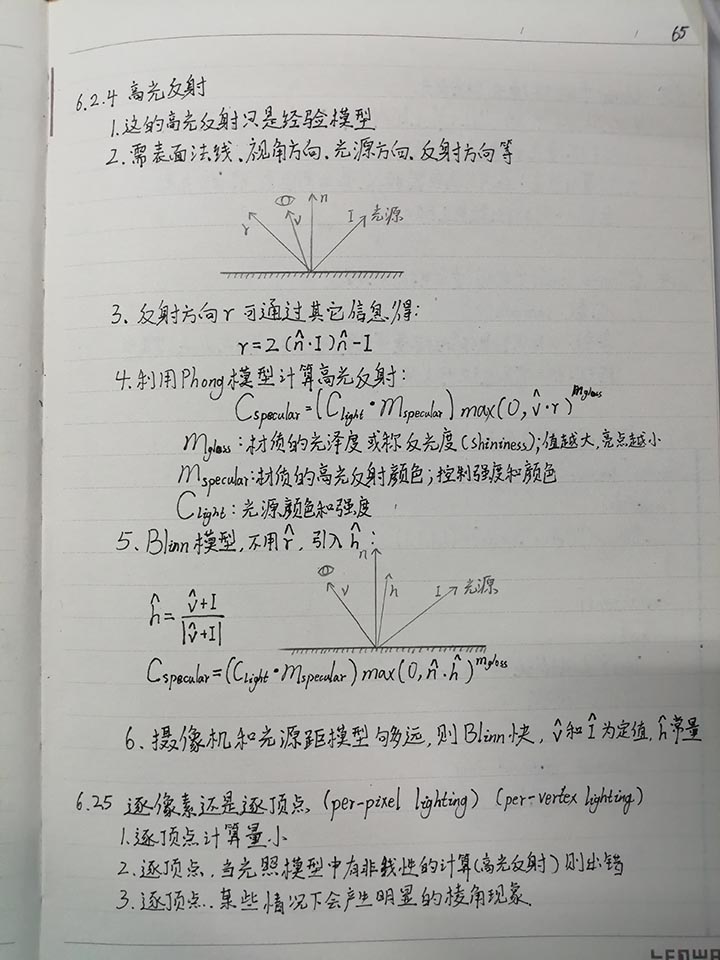 65
6.2.4 高光反射
1.这的高光反射只是经验模型
2.需表面法线、视角方向、光源方向、反射方向等
r v n I 光源
3、反射方向r可通过其它信息得:
r=2(n̂·I)n̂-I
4.利用Phong模型计算高光反射:
Cspecular=(Clight·Mspecular)max(0,v̂·r)^mgloss
mgloss:材质的光泽度或称反光度(shininess);值越大,亮点越小
Mspecular:材质的高光反射颜色;控制强度和颜色
Clight:光源颜色和强度
5、Blinn模型,不用r̂,引入ĥ:
n v h I 光源
ĥ=(v̂+I)/|v̂+I|
Cspecular=(Clight·Mspecular)max(0,n̂·ĥ)^mgloss
6、摄像机和光源距模型够远,则Blinn快,v̂和Î为定值,ĥ常量
6.25 逐像素还是逐顶点 (per-pixel lighting) (per-vertex lighting)
1.逐顶点计算量小
2.逐顶点,当光照模型中有非线性的计算(高光反射)则出错
3.逐顶点..某些情况下会产生明显的棱角现象